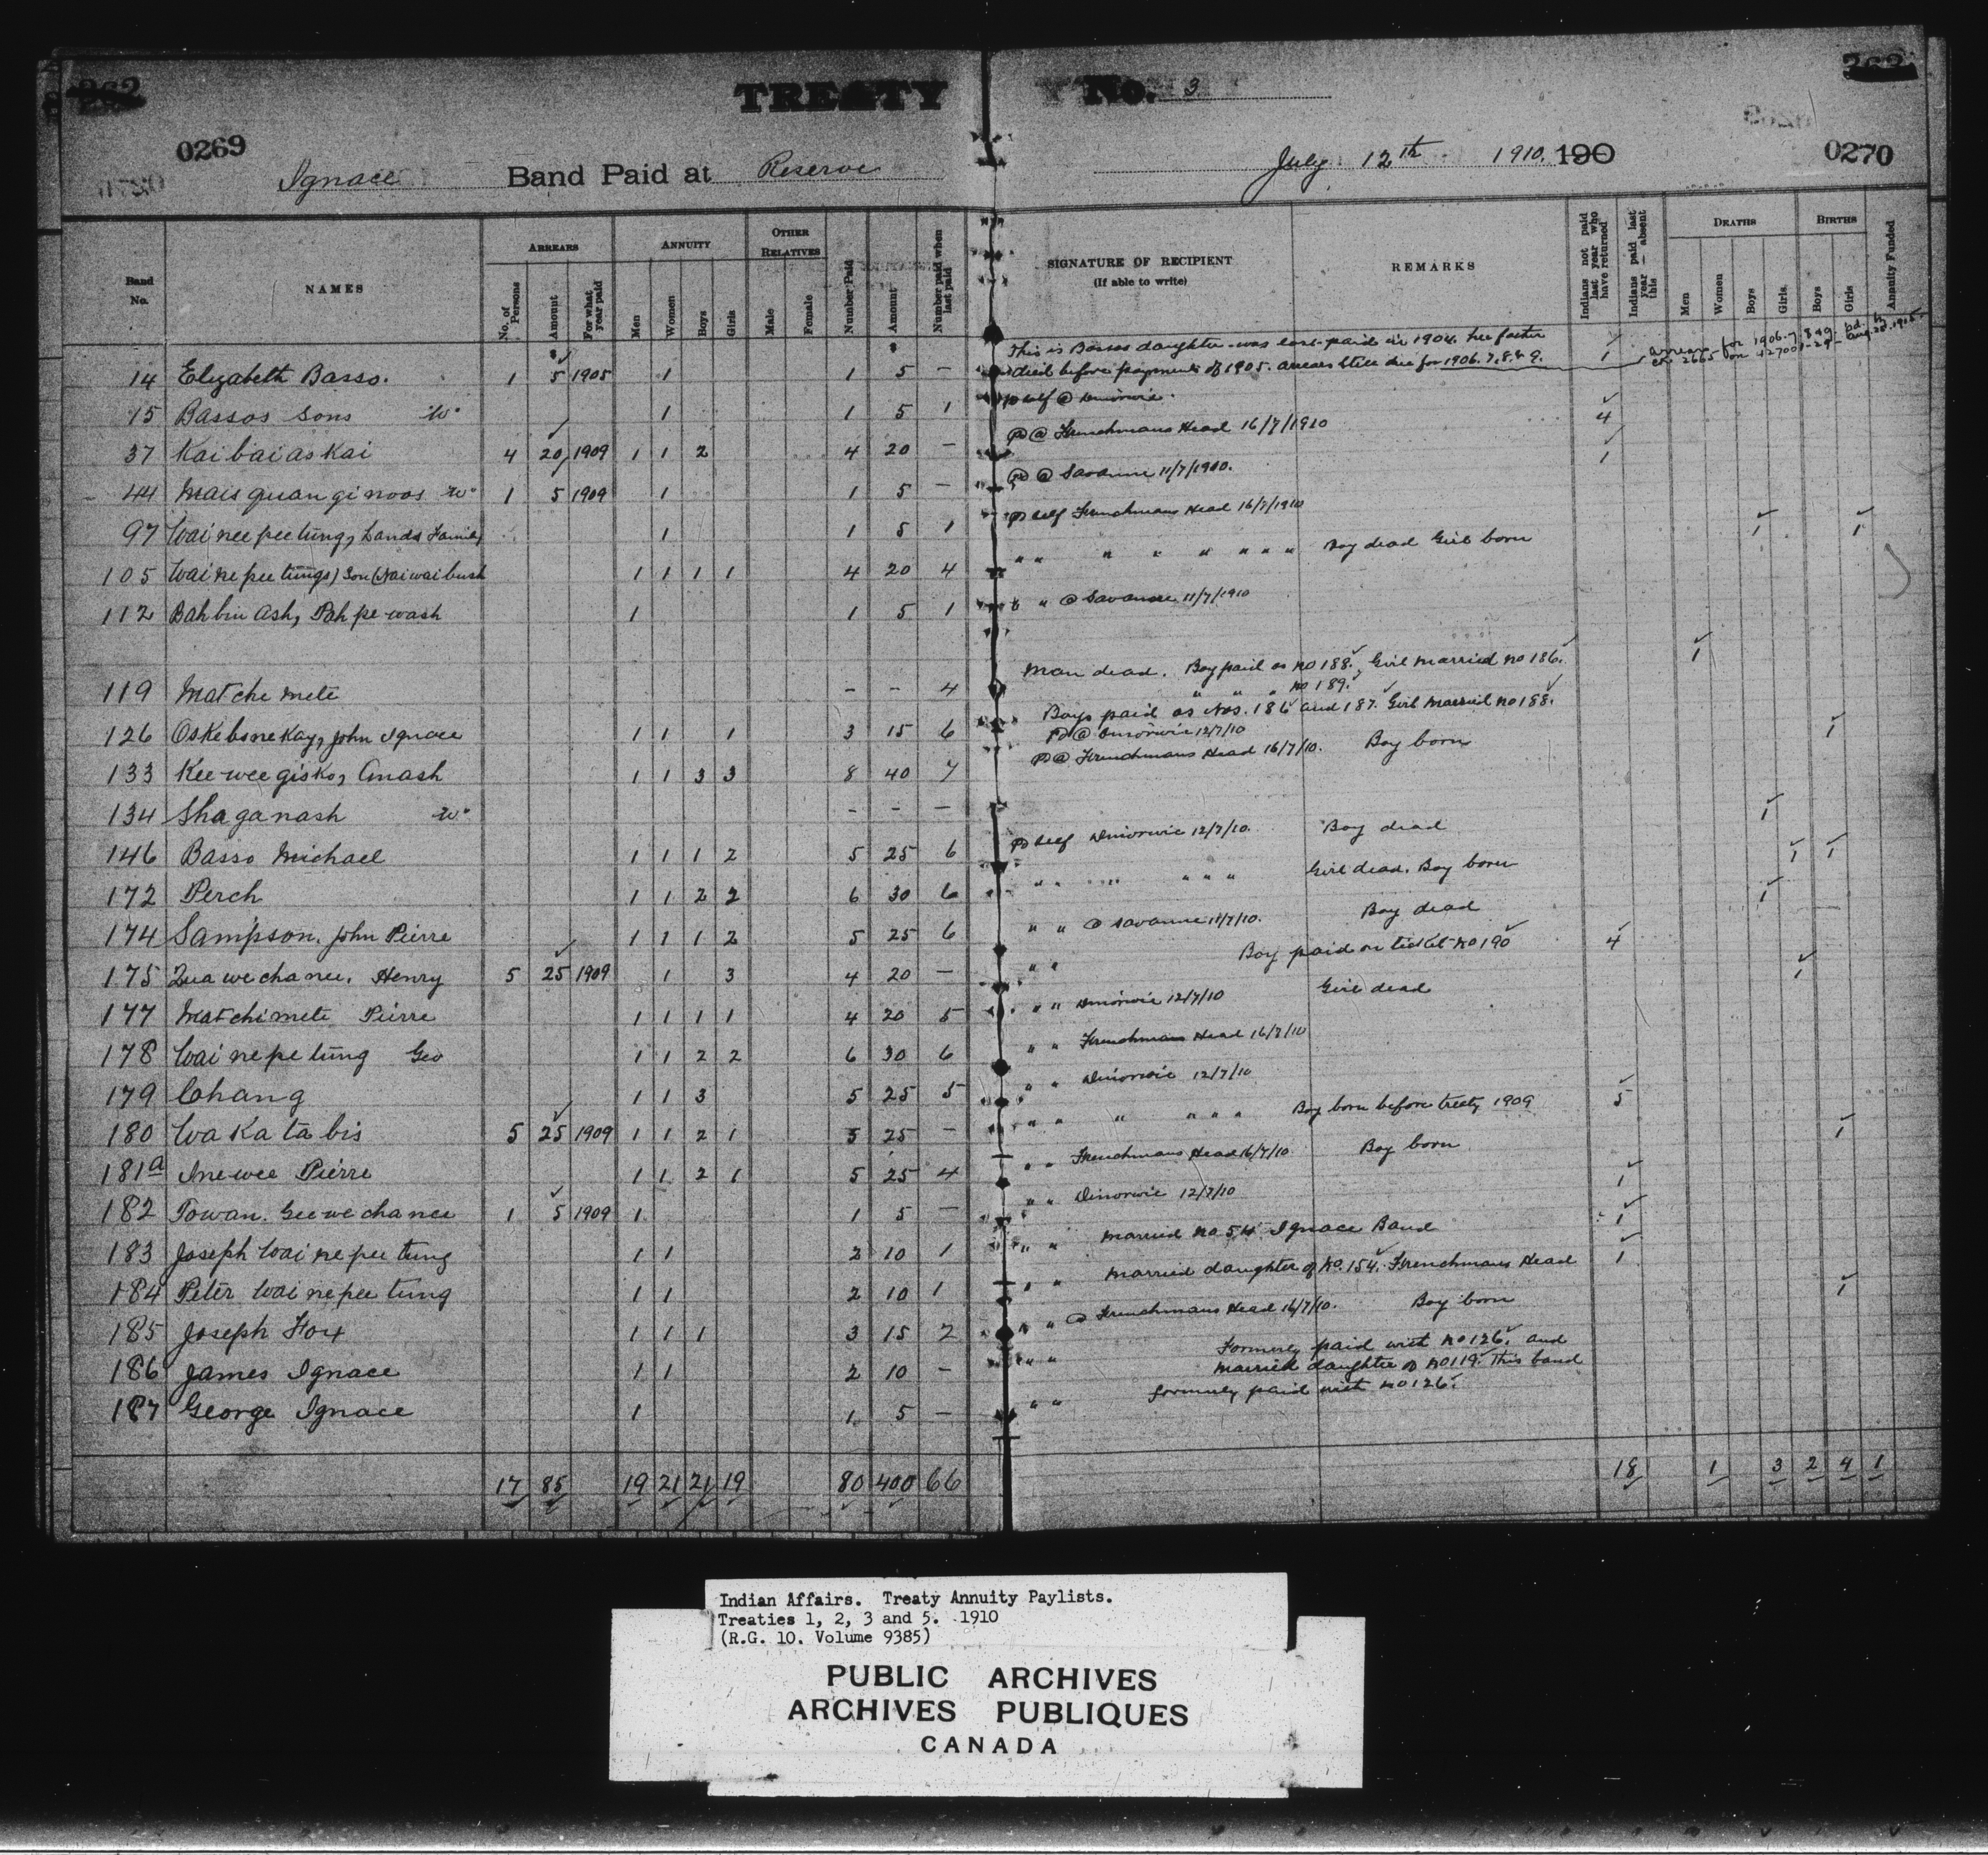 262
TREATY No. 3
262
0269
0270
Ignace Band Paid at Reserve July 12th 1910. 190
Band No. NAMES ARREARS No. of Persons Amount For what year paid ANNUITY Men Women Boys Girls OTHER RELATIVES Male Female Number Paid Amount Number paid when last paid SIGNATURE OF RECIPIENT (If able to write) REMARKS Indians not paid last year who have returned Indians paid last year — absent this DEATHS Men Women Boys Girls BIRTHS Boys Girls Annuity Funded
This is Bassos daughter was last paid in 1904. her father
Arrears for 1906-7. 8 & 9 pd. by
14 Elizabeth Basso. 1 5 1905 1 1 5 — died before payments of 1905. arrears still due for 1906. 7. 8. & 9. 1
15 Bassos Sons W° 1 1 5 1 self @ Dinorwic.
37 Kaibaiaskai 4 20 1909 1 1 2 4 20 — Pd @ Frenchmans Head 16/7/1910 4
44 Maisquanginoos W° 1 5 1909 1 1 5 — Pd @ Savanne 11/7/1910. 1
97 Waineepeetung, Lands Family 1 1 5 1 Pd self Frenchmans Head 16/7/1910
105 Wainepeetungs) Son (Naiwaibush 1 1 1 1 4 20 4 " " " " " " " " " Boy dead Girl born 1 1
112 Bahbinash, Pahpewash 1 1 5 1 " " @ Savanne 11/7/1910
119 Matchemete - - 4 Man dead. Boy paid as No 188. Girl married no 186. 1
" " " no 189.
Boys paid as Nos. 186 and 187. Girl married no 188.
126 Oskebonekay, John Ignace 1 1 1 3 15 6 Pd @ Dinorwic 12/7/10
133 Keeweegisko, Anash 1 1 3 3 8 40 7 Pd @ Frenchmans Head 16/7/10. Boy born 1
134 Shaganash W° - - —
146 Basso Michael 1 1 1 2 5 25 6 Pd self Dinorwic 12/7/10. Boy dead 1
172 Perch 1 1 2 2 6 30 6 " " " " " " Girl dead. Boy born 1 1
174 Sampson, John Pierre 1 1 1 2 5 25 6 " " @ Savanne 11/7/10. Boy dead 1
175 Quawechanee, Henry 5 25 1909 1 3 4 20 — " " Boy paid on ticket no 190 4
177 Matchimete Pierre 1 1 1 1 4 20 5 " " Dinorwic 12/7/10 Girl dead 1
178 Wainepetung Geo 1 1 2 2 6 30 6 " " Frenchmans Head 16/7/10
179 Chang 1 1 3 5 25 5 " " Dinorwic 12/7/10
180 Wakatabis 5 25 1909 1 1 2 1 5 25 — " " " " " " Boy born before treaty 1909 5
181a Inewee Pierre 1 1 2 1 5 25 4 " " Frenchmans Head 16/7/10 Boy born 1
182 Towan. Geewechanee 1 5 1909 1 1 5 — " " Dinorwic 12/7/10 1
183 Joseph Wainepeetung 1 1 2 10 1 " " Married no 54 Ignace Band 1
184 Peter Wainepeetung 1 1 2 10 1 " " Married daughter of No. 154. Frenchmans Head 1
185 Joseph Fox 1 1 1 3 15 2 " " @ Frenchmans Head 16/7/10. Boy born 1
186 James Ignace 1 1 2 10 — " " Formerly paid with no 126. and
married daughter of no 119. This band
187 George Ignace 1 1 5 — " " formerly paid with no 126.
17 85 19 21 21 19 80 400 66 18 1 3 2 4 1
Indian Affairs. Treaty Annuity Paylists.
Treaties 1, 2, 3 and 5. 1910
(R.G. 10. Volume 9385)
PUBLIC ARCHIVES
ARCHIVES PUBLIQUES
CANADA